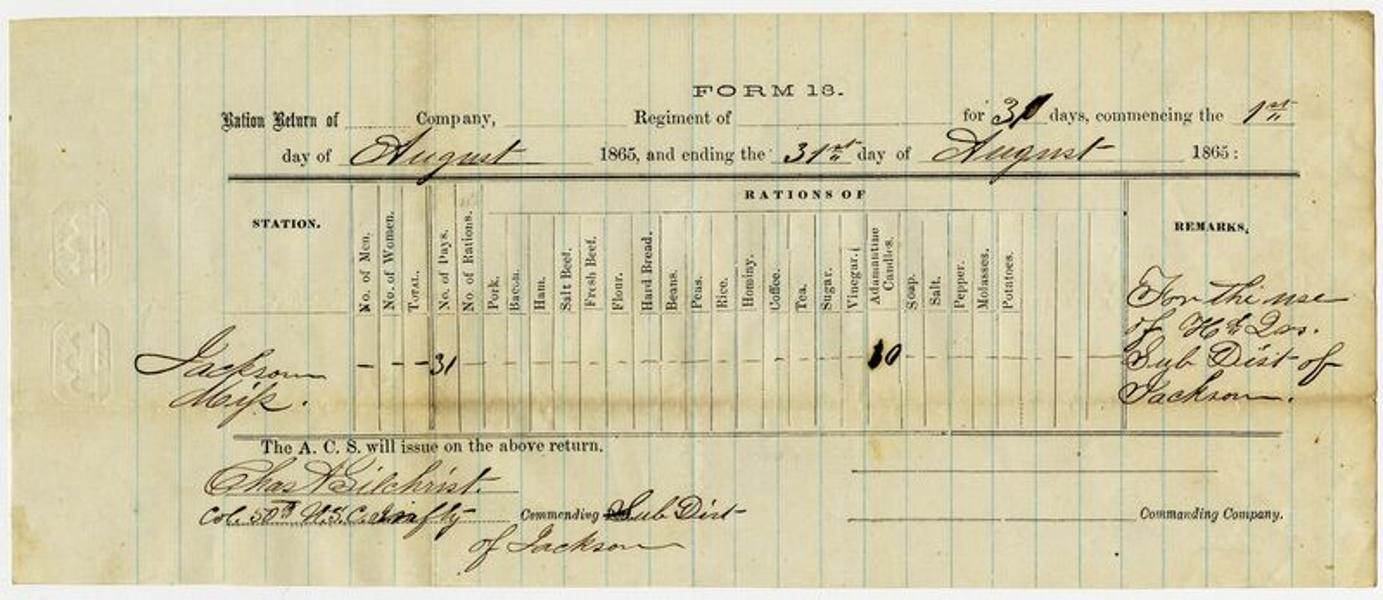 FORM 13.
Ration Return of Company, Regiment of for 31 days, commencing the 1st
day of August 1865, and ending the 31st day of August 1865:
RATIONS OF
STATION. No. of Men. No. of Women. TOTAL. No. of Days. No. of Rations. Pork. Bacon. Ham. Salt Beef. Fresh Beef. Flour. Hard Bread. Beans. Peas. Rice. Hominy. Coffee. Tea. Sugar. Vinegar. Adamantine Candles. Soap. Salt. Pepper. Molasses. Potatoes. REMARKS.
Jackson Miss. 31 10 For the use
of Hd Qrs.
Sub Dist of
Jackson.
The A. C. S. will issue on the above return.
Chas A Gilchrist.
Col. 50th U.S.C. Infty Commanding Sub Dist Commanding Company.
of Jackson